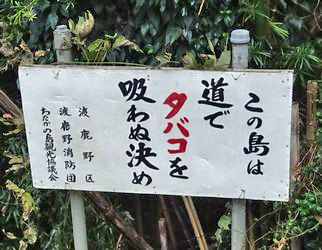 この島は
道で
タバコを
吸わぬ決め
渡鹿野区
渡鹿野消防団
わたかの島観光協議会